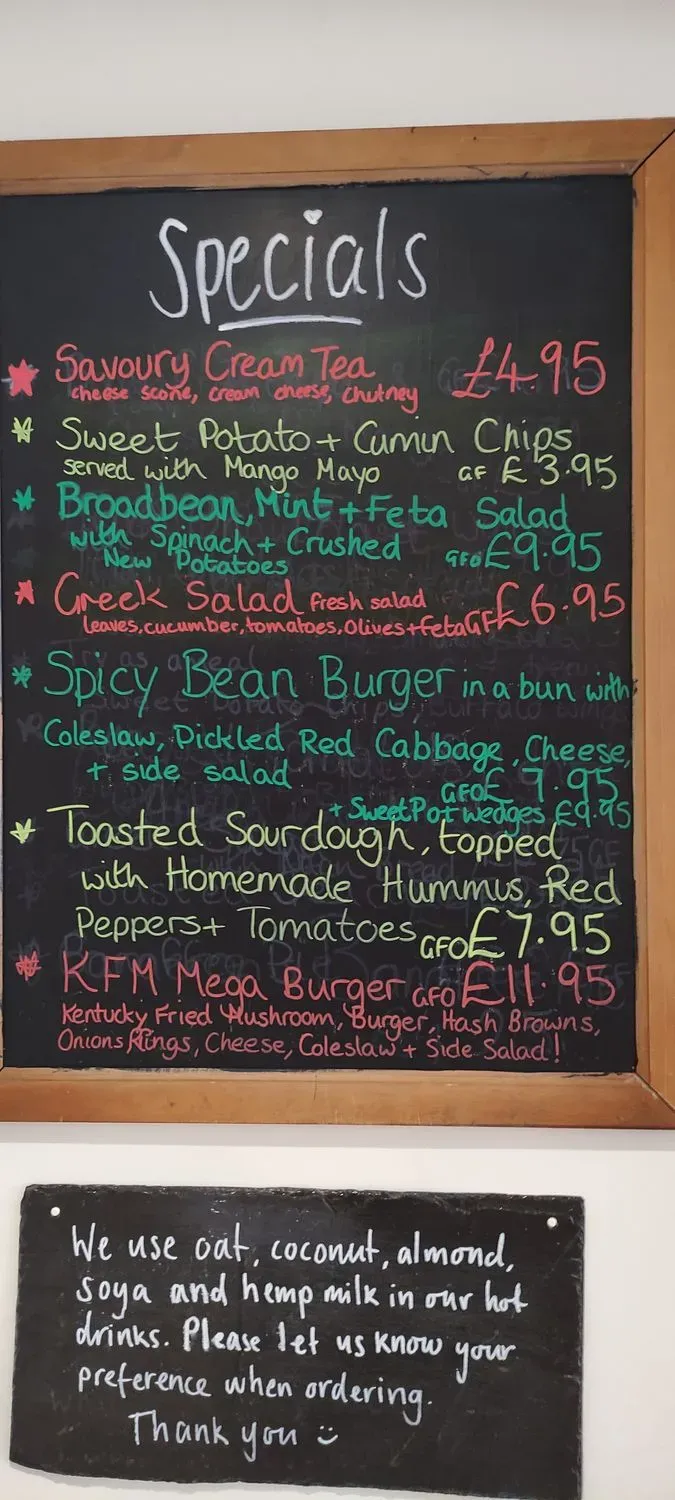 Specials
Savoury Cream Tea £4.95
cheese scone, cream cheese, chutney
Sweet Potato + Cumin Chips
served with Mango Mayo GF £3.95
Broadbean, Mint + Feta Salad
with Spinach + Crushed GFO £9.95
New Potatoes
Greek Salad fresh salad £6.95
leaves, cucumber, tomatoes, Olives + Feta GF
Spicy Bean Burger in a bun with
Coleslaw, Pickled Red Cabbage, Cheese,
+ side salad GFO £7.95
+ Sweet Pot wedges £9.95
Toasted Sourdough, topped
with Homemade Hummus, Red
Peppers + Tomatoes GFO £7.95
KFM Mega Burger GFO £11.95
Kentucky Fried Mushroom, Burger, Hash Browns,
Onions Rings, Cheese, Coleslaw + Side Salad!
We use oat, coconut, almond,
soya and hemp milk in our hot
drinks. Please let us know your
preference when ordering.
Thank you